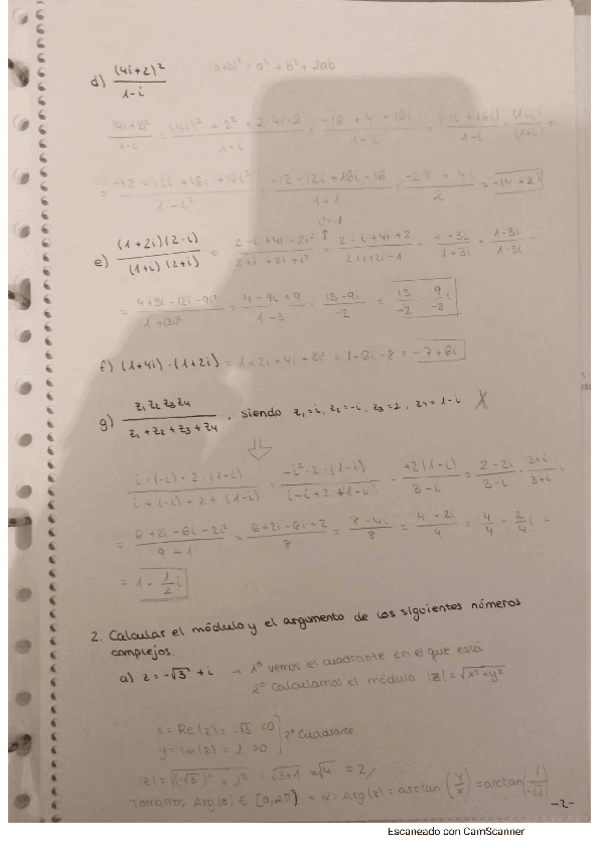 d) (4i+2)² / 1-i   (a+b)² = a² + b² + 2ab
(4i+2)² / 1-i = (4i)² + 2² + 2·4i·2 / 1-i = -16 + 4 + 16i / 1-i = (-12 + 16i) / 1-i · (1+i) / (1+i) =
= -12 - 12i + 16i + 16i² / 1-i² = -12 - 12i + 16i - 16 / 1+1 = / 2 = -14 + 2i
e) (1+2i)(2-i) / (1+i)(2+i) = 2-i+4i-2i² / 2+i+2i+i² = 2-i+4i+2 / = 4+3i / 1+3i · 1-3i / 1-3i =
= 4+3i-12i-9i² / = 4-9i+9 / 1-3 = 13-9i / -2 = 13 / -2 - 9 / -2 i
f) (1+4i)·(1+2i) = 1+2i+4i+8i² = 1+6i-8 = -7+6i
g) z₁ z₂ z₃ z₄ / z₁ + z₂ + z₃ + z₄ , siendo z₁=i, z₂=-i, z₃=2, z₄=1-i X
i·(-i)·2·(1-i) / i+(-i)+2+(1-i) = -i²·2·(1-i) / i-i+2+1-i = +2(1-i) / 3-i = 2-2i / 3-i · 3+i / 3+i =
= 6+2i-6i-2i² / 9-1 = 6+2i-6i+2 / 8 = 8-4i / 8 = 4-2i / 4 = 4 / 4 - 2 / 4 i =
= 1 - 1 / 2 i
2. Calcular el módulo y el argumento de los siguientes números
complejos.
a) z = -√3 + i → 1º vemos el cuadrante en el que está
2º Calculamos el módulo |z| = √x²+y²
x = Re(z) = -√3 <0
y = Im(z) = 1 >0 ] 2º Cuadrante
|z| = √(-√3)² + 1² = √3+1 = √4 = 2
Tomamos Arg(z) ∈ [0,2π) → α = Arg(z) = arctan (y / x) = arctan (1 / -√3)
-2-
Escaneado con CamScanner